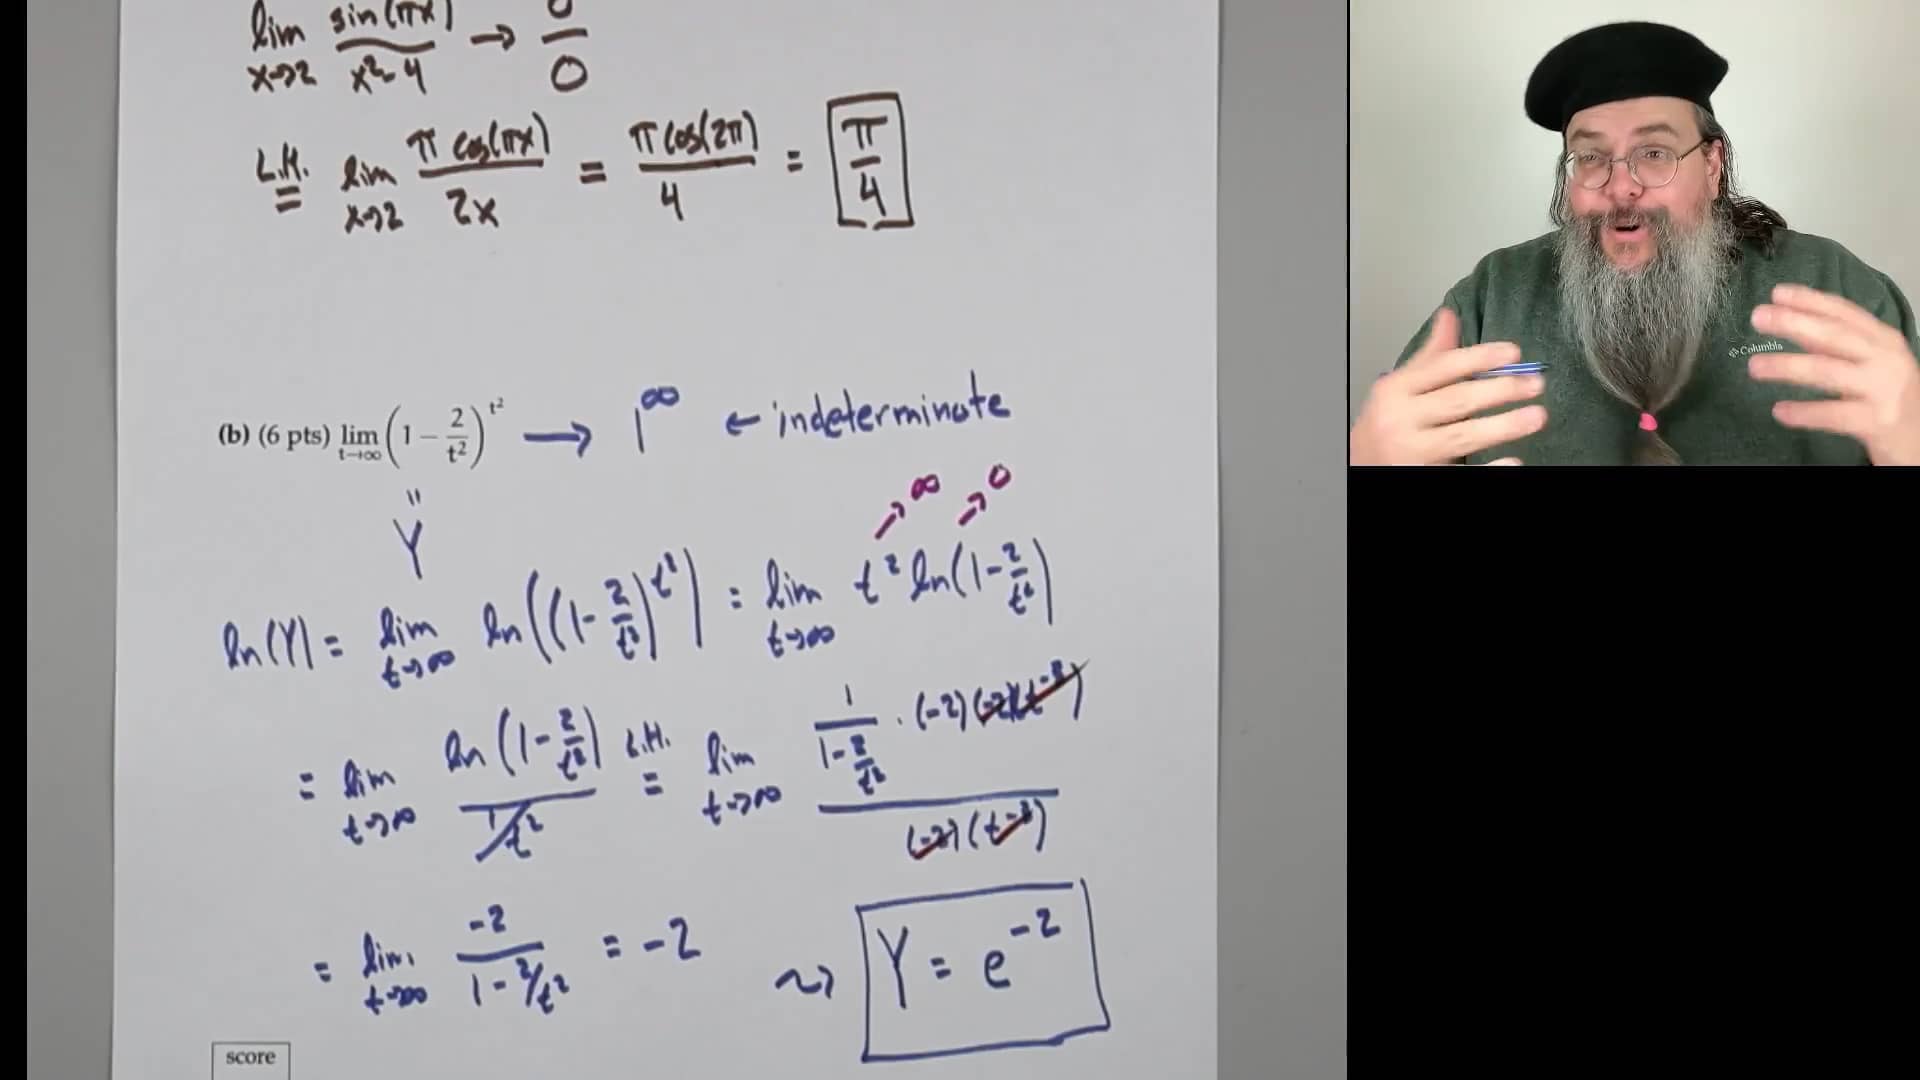 lim sin(πx) / x²-4 → 0/0
x→2
L.H. = lim π cos(πx) / 2x = π cos(2π) / 4 = π/4
x→2
(b) (6 pts) lim t→∞ (1 − 2/t²)^t² → 1^∞ ← indeterminate
"
Y
→∞ →0
ln(Y) = lim t→∞ ln((1-2/t²)^t²) = lim t→∞ t² ln(1-2/t²)
= lim t→∞ ln(1-2/t²) / 1/t² L.H. = lim t→∞ 1/(1-2/t²) · (-2)(-2)(t⁻³) / (-2)(t⁻³)
= lim t→∞ -2 / 1-2/t² = -2 ⇝ Y = e⁻²
score
Columbia